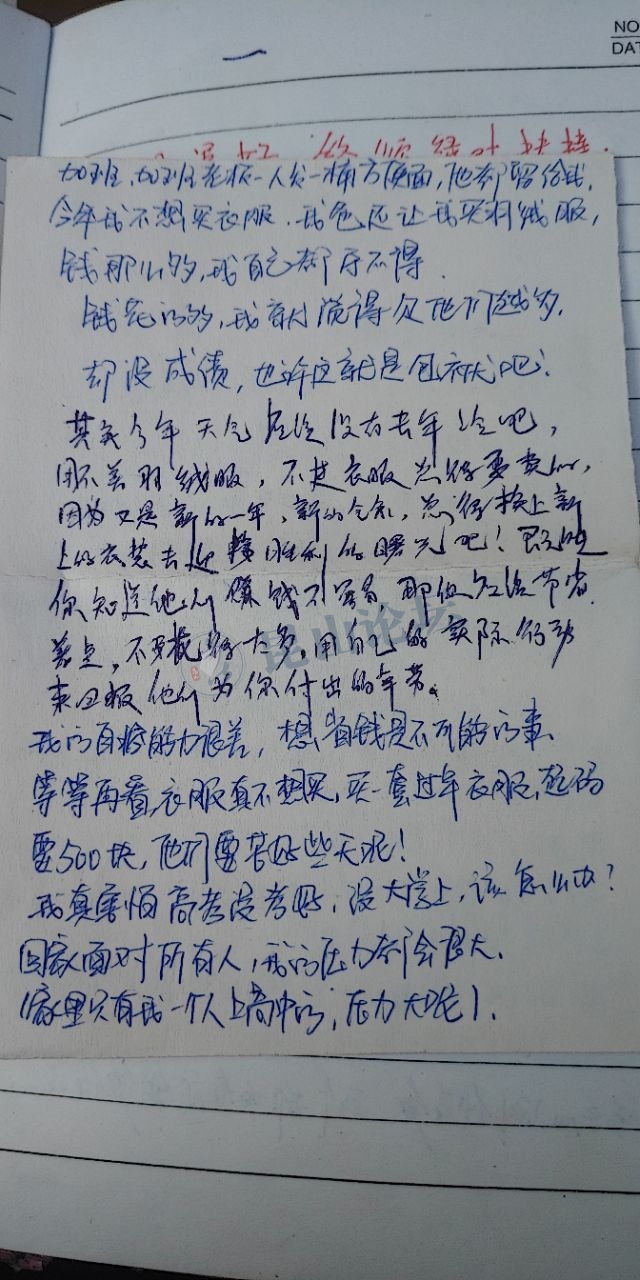 NO
DAT
一
加班,加班老板一人发一桶方便面,他都留给我.
今年我不想买衣服.我爸还让我买羽绒服,
钱那么多,我自己都舍不得.
钱花的多,我就觉得欠他们越多.
却没成绩,也许这就是包袱吧!
其实今年天气应该没有去年冷吧,
用不着羽绒服,不过衣服总得要卖的,
因为又是新的一年,新的气氛,总得换上新
上的衣装去迎接胜利的曙光吧!既然
你知道他们赚钱不容易,那你应该节省
着点,不要花得太多,用自己的实际行动
来回报他们为你付出的辛苦。
我的自控能力很差,想省钱是不可能的事.
等等再看,衣服真不想买,买一套过年衣服,起码
要500块,他们要苦好些天呢!
我真害怕高考没考好,没大学上,该怎么办?
回家面对所有人,我的压力都会很大.
(家里只有我一个人上高中的,压力大呢).
昆山论坛